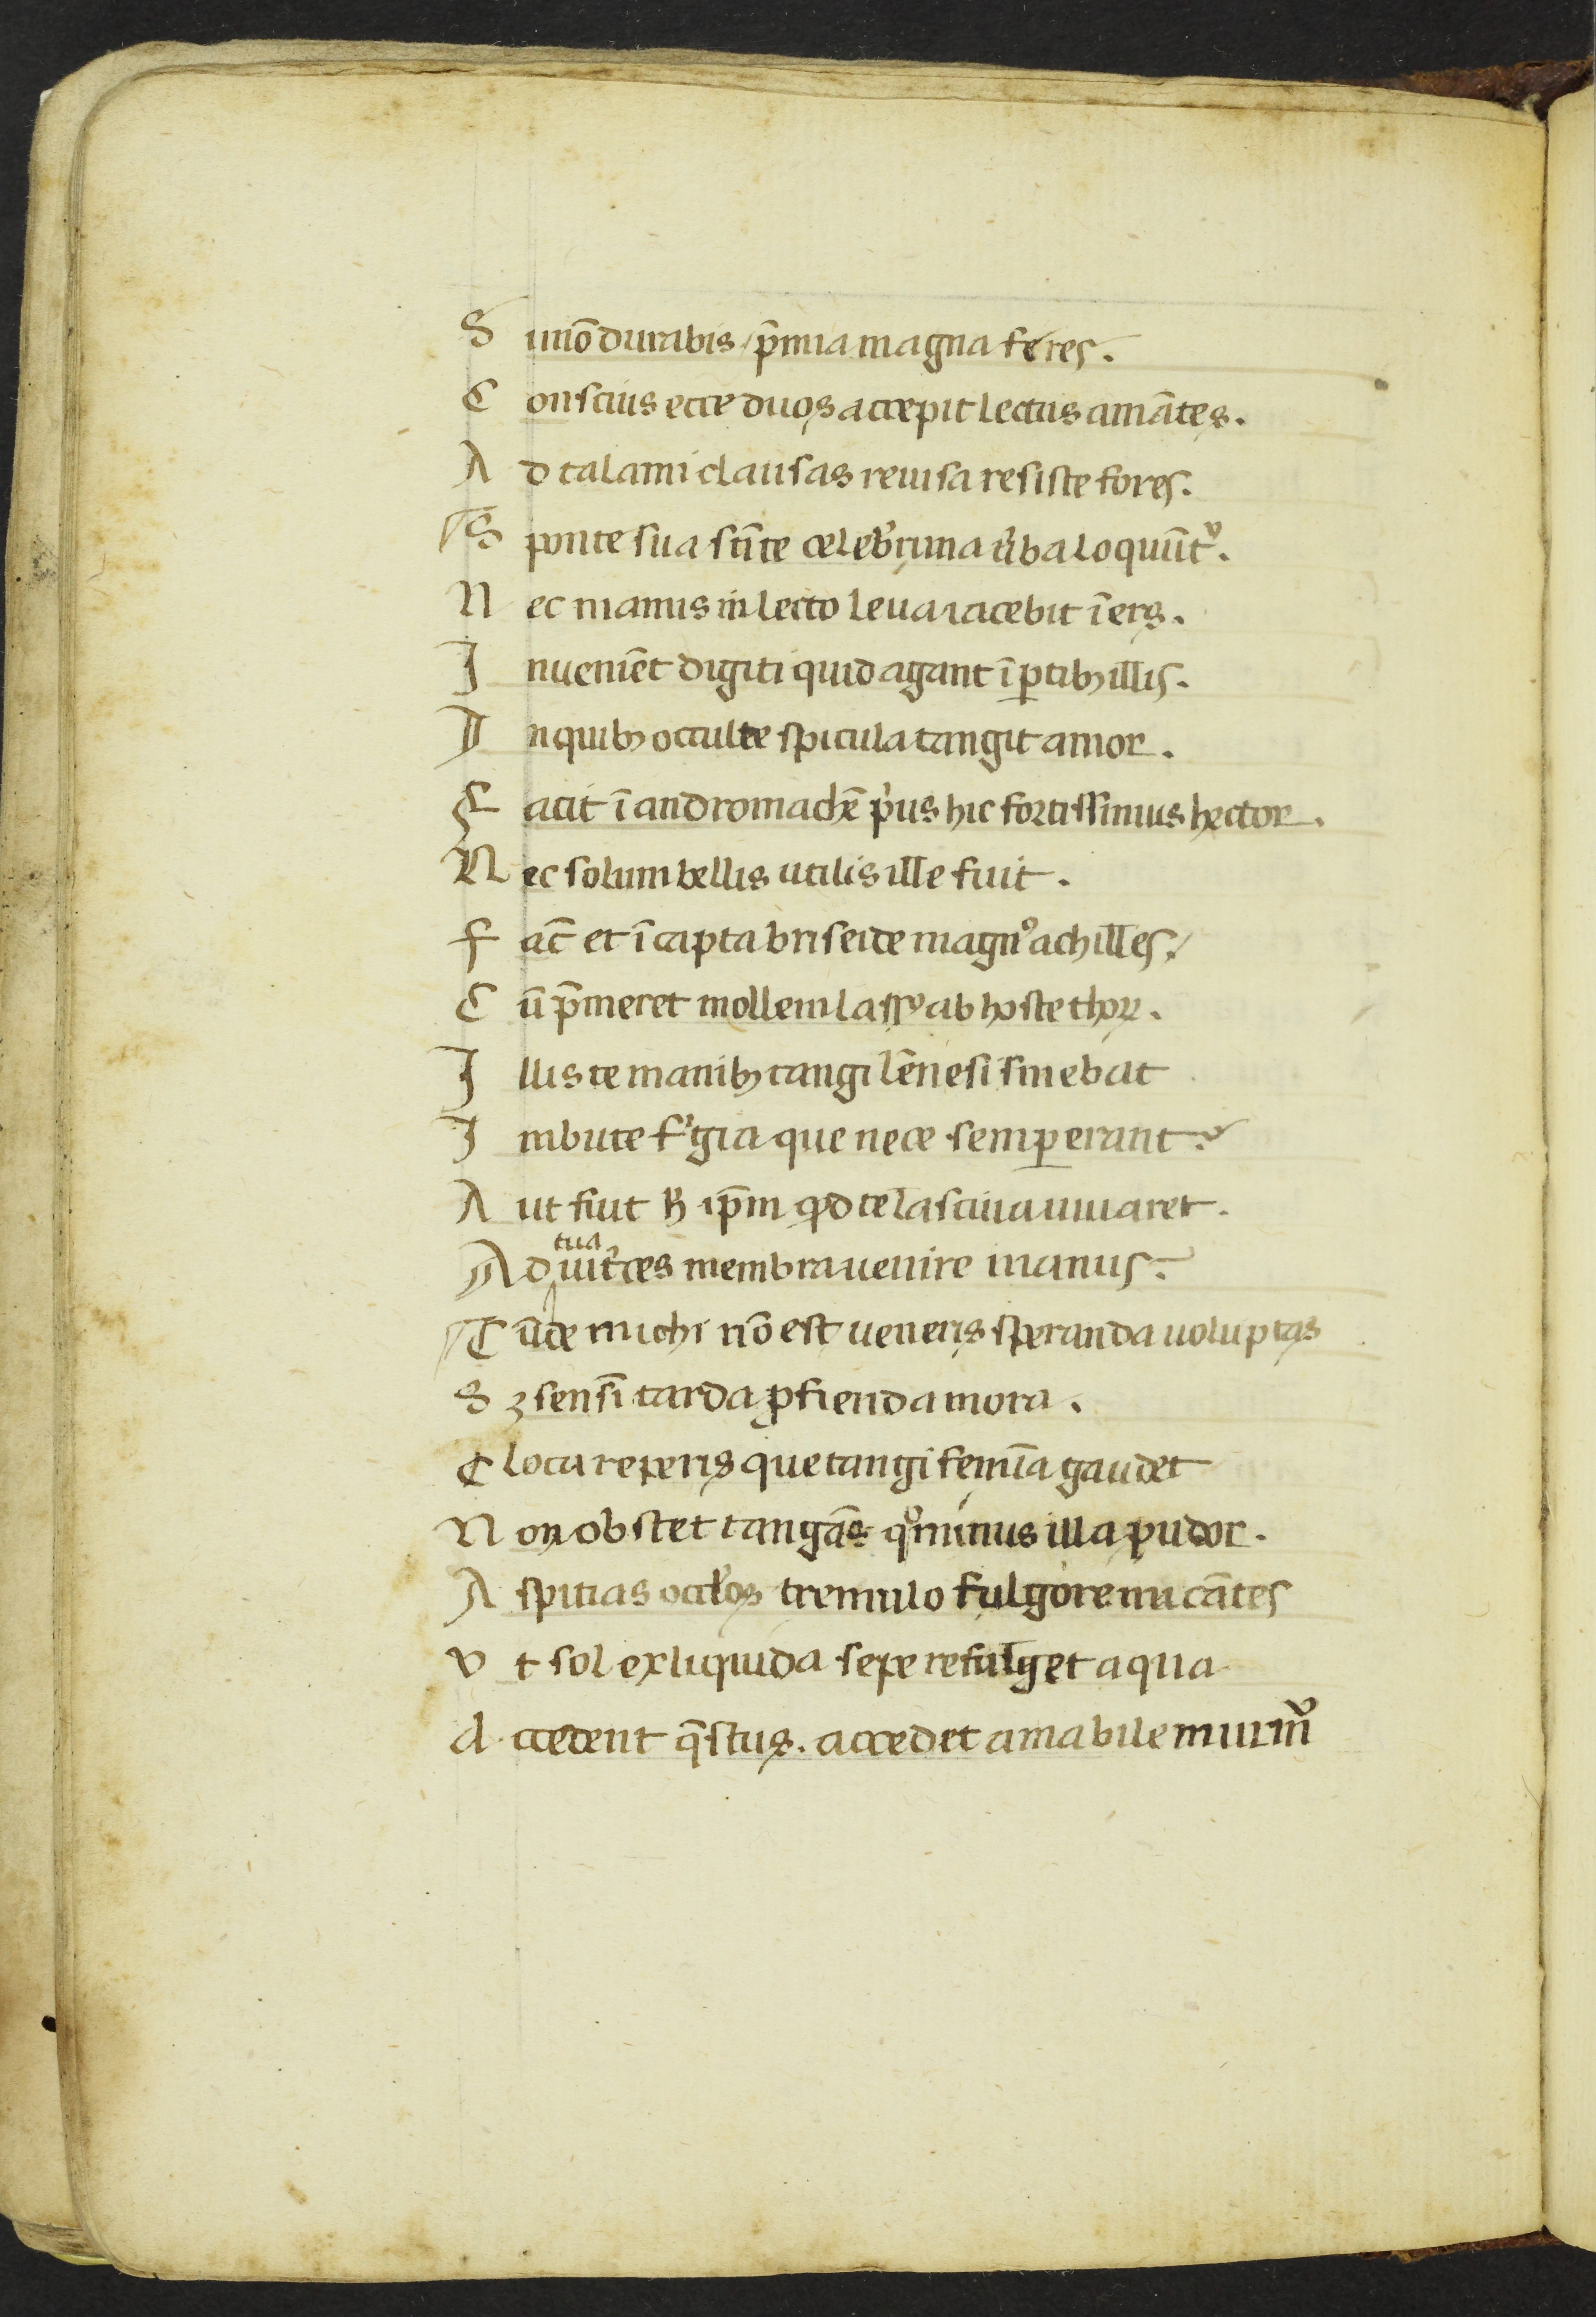 S imõ durabis / p̃mia magna feres.
C onscius ecce duos accepit lectus amãtes.
A d talami clausas reuisa resiste fores.
S ponte sua sñ te celeb̓rima u̓ba loquũt᷑.
N ec manus in lecto leua iacebit ĩers.
I nueniẽt digiti quid agant ĩ ꝑtibꝫ illis.
I n quibꝫ occulte spicula tangit amor.
F ecit ĩ andromachẽ p̓us hic fortissimus hector.
N ec solum bellis utilis ille fuit.
F ac̃ et ĩ capta briseide magnꝰ achilles.
C ũ p̃meret mollem lassꝰ ab hoste thoꝝ.
I llis te manibꝫ tangi lẽnesi sinebat
I mbute f̓gia que nece semꝑ erant.
A ut fuit h̓ ip̃m qd̓ te lasciua iuuaret.
A d tua uit̓ces membra uenire manus.
C ũde michi nõ est ueneris speranda uoluptas
S ꝫ sensĩ tarda ꝓfienda mora.
C loca reperis que tangi femĩa gaudet
N on obstet tangãs qͦminus illa pudor.
A spitias occl̓os tremulo fulgore micãtes
V t sol ex liquida sepe refulget aqua
A ccedent q̃stus. accedet amabile murm᷑